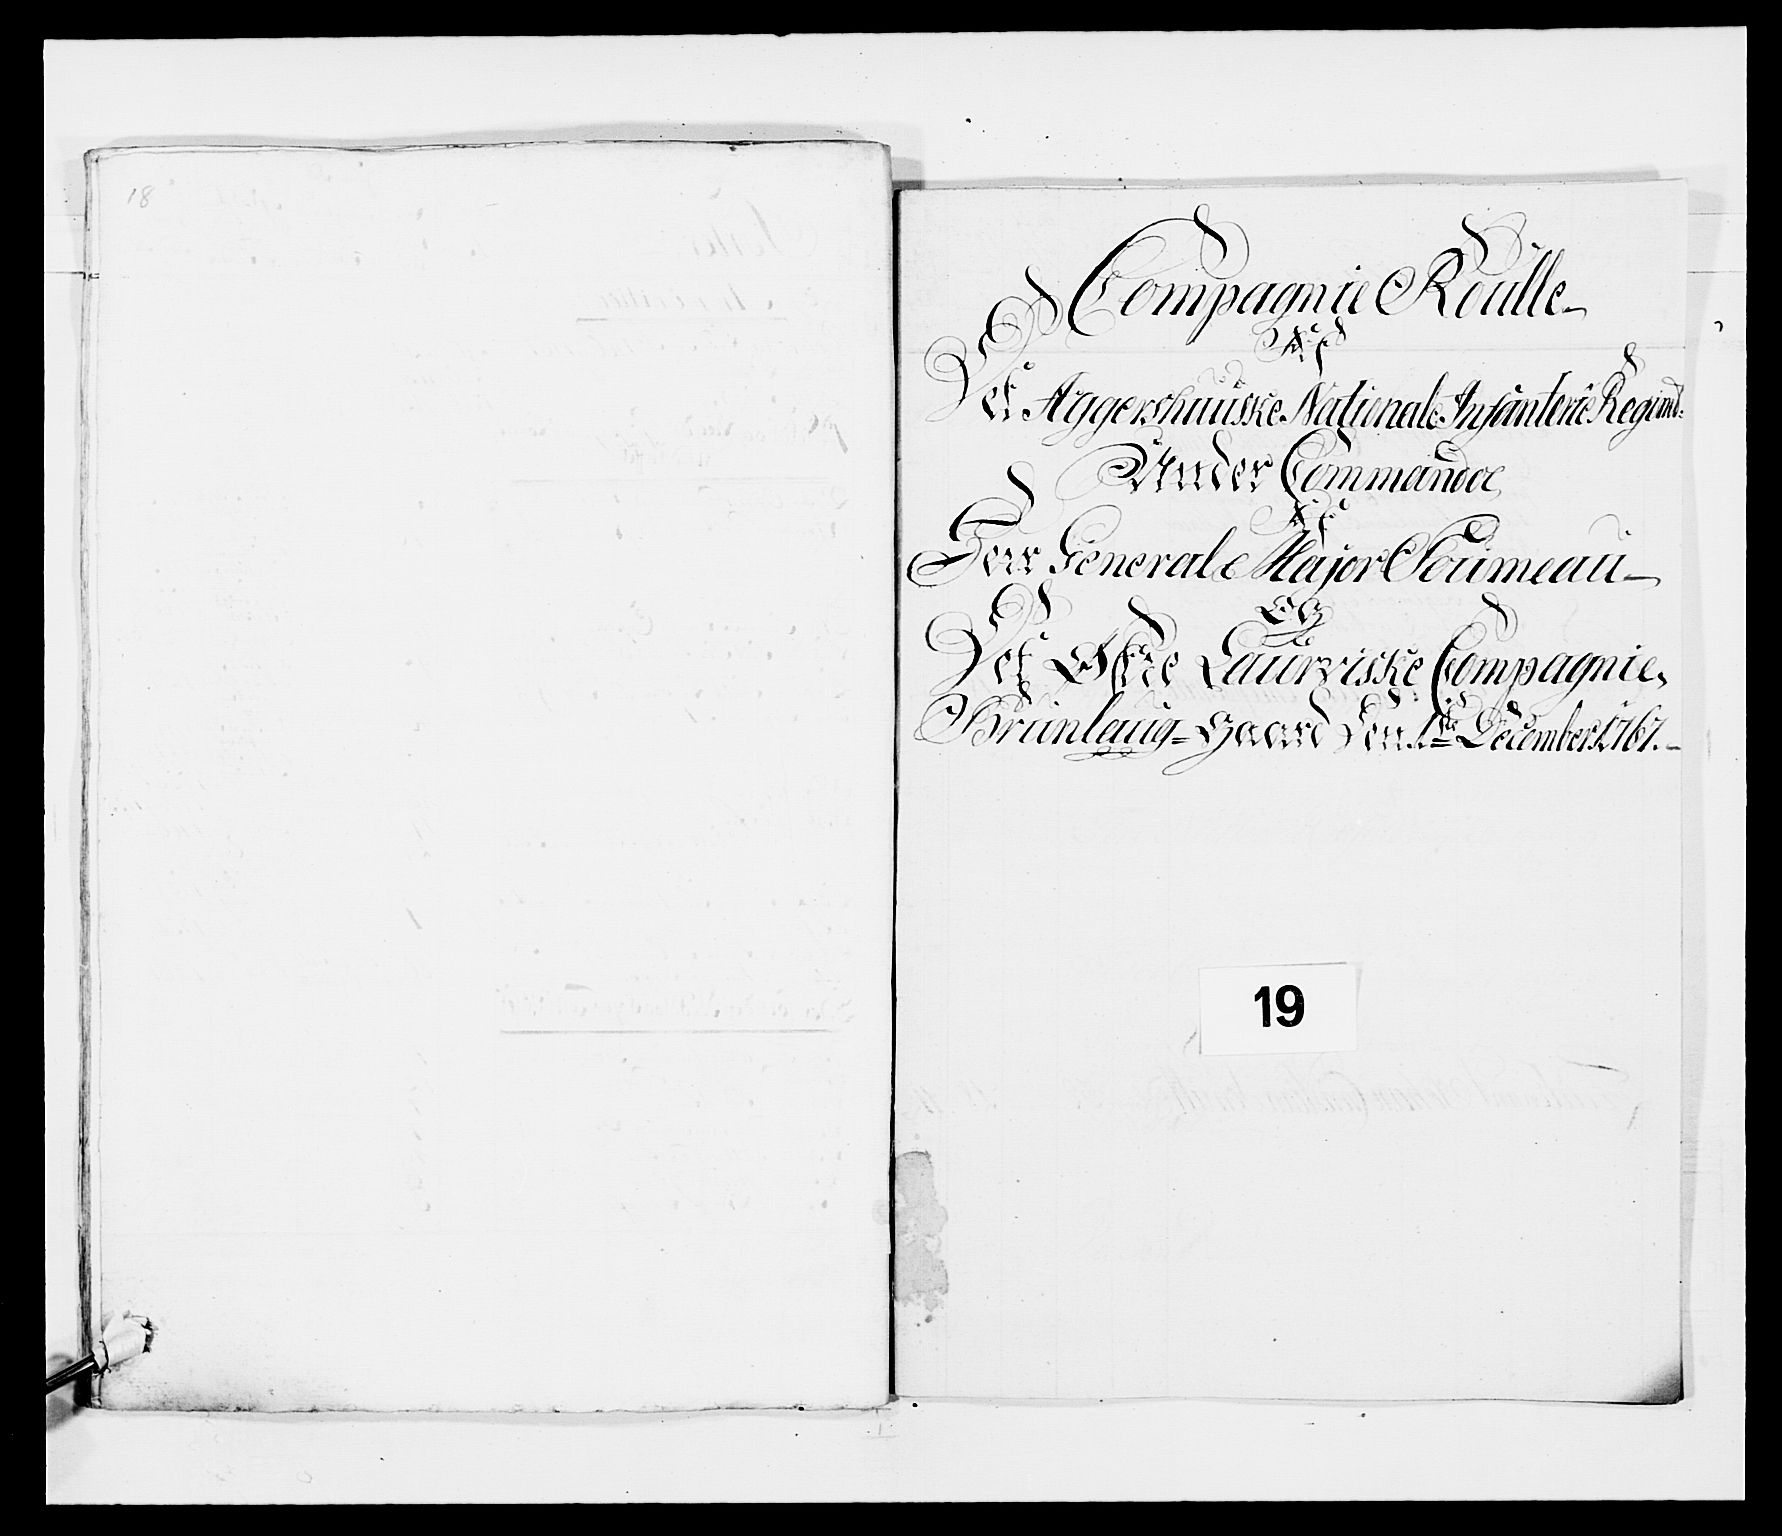 18
Compagnie Roulle
Af
Det Aggershuuske Nationale Infanterie Regimt:
Under Commandoe
Af
Herr General Major Soumeau
Og
Det Øfre Laurviske Compagnie
Brunlaug-Gaard Den 1te December 1767.
19